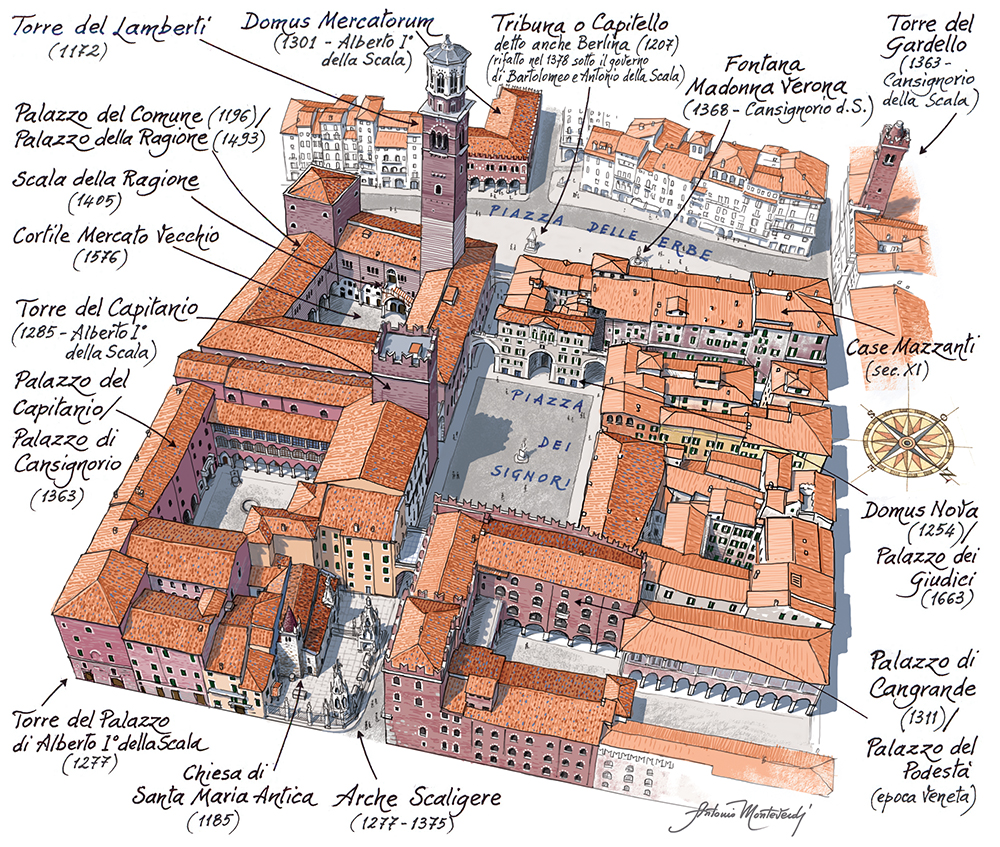 Torre del Lamberti
(1172)
Domus Mercatorum
(1301 - Alberto I°
della Scala)
Tribuna o Capitello
detto anche Berlina (1207)
(rifatto nel 1378 sotto il governo
di Bartolomeo e Antonio della Scala)
Fontana
Madonna Verona
(1368 - Cansignorio d.S.)
Torre del
Gardello
(1363-
Cansignorio
della Scala)
Palazzo del Comune (1196)/
Palazzo della Ragione (1493)
Scala della Ragione
(1405)
Cortile Mercato Vecchio
(1576)
Torre del Capitanio
(1285 - Alberto I°
della Scala)
Palazzo del
Capitanio/
Palazzo di
Cansignorio
(1363)
PIAZZA DELLE ERBE
PIAZZA
DEI
SIGNORI
Case Mazzanti
(sec. XI)
Domus Nova
(1254)/
Palazzo dei
Giudici
(1663)
Palazzo di
Cangrande
(1311)/
Palazzo del
Podestà
(epoca veneta)
Torre del Palazzo
di Alberto I° della Scala
(1277)
Chiesa di
Santa Maria Antica
(1185)
Arche Scaligere
(1277-1375)
Antonio Monteverdi